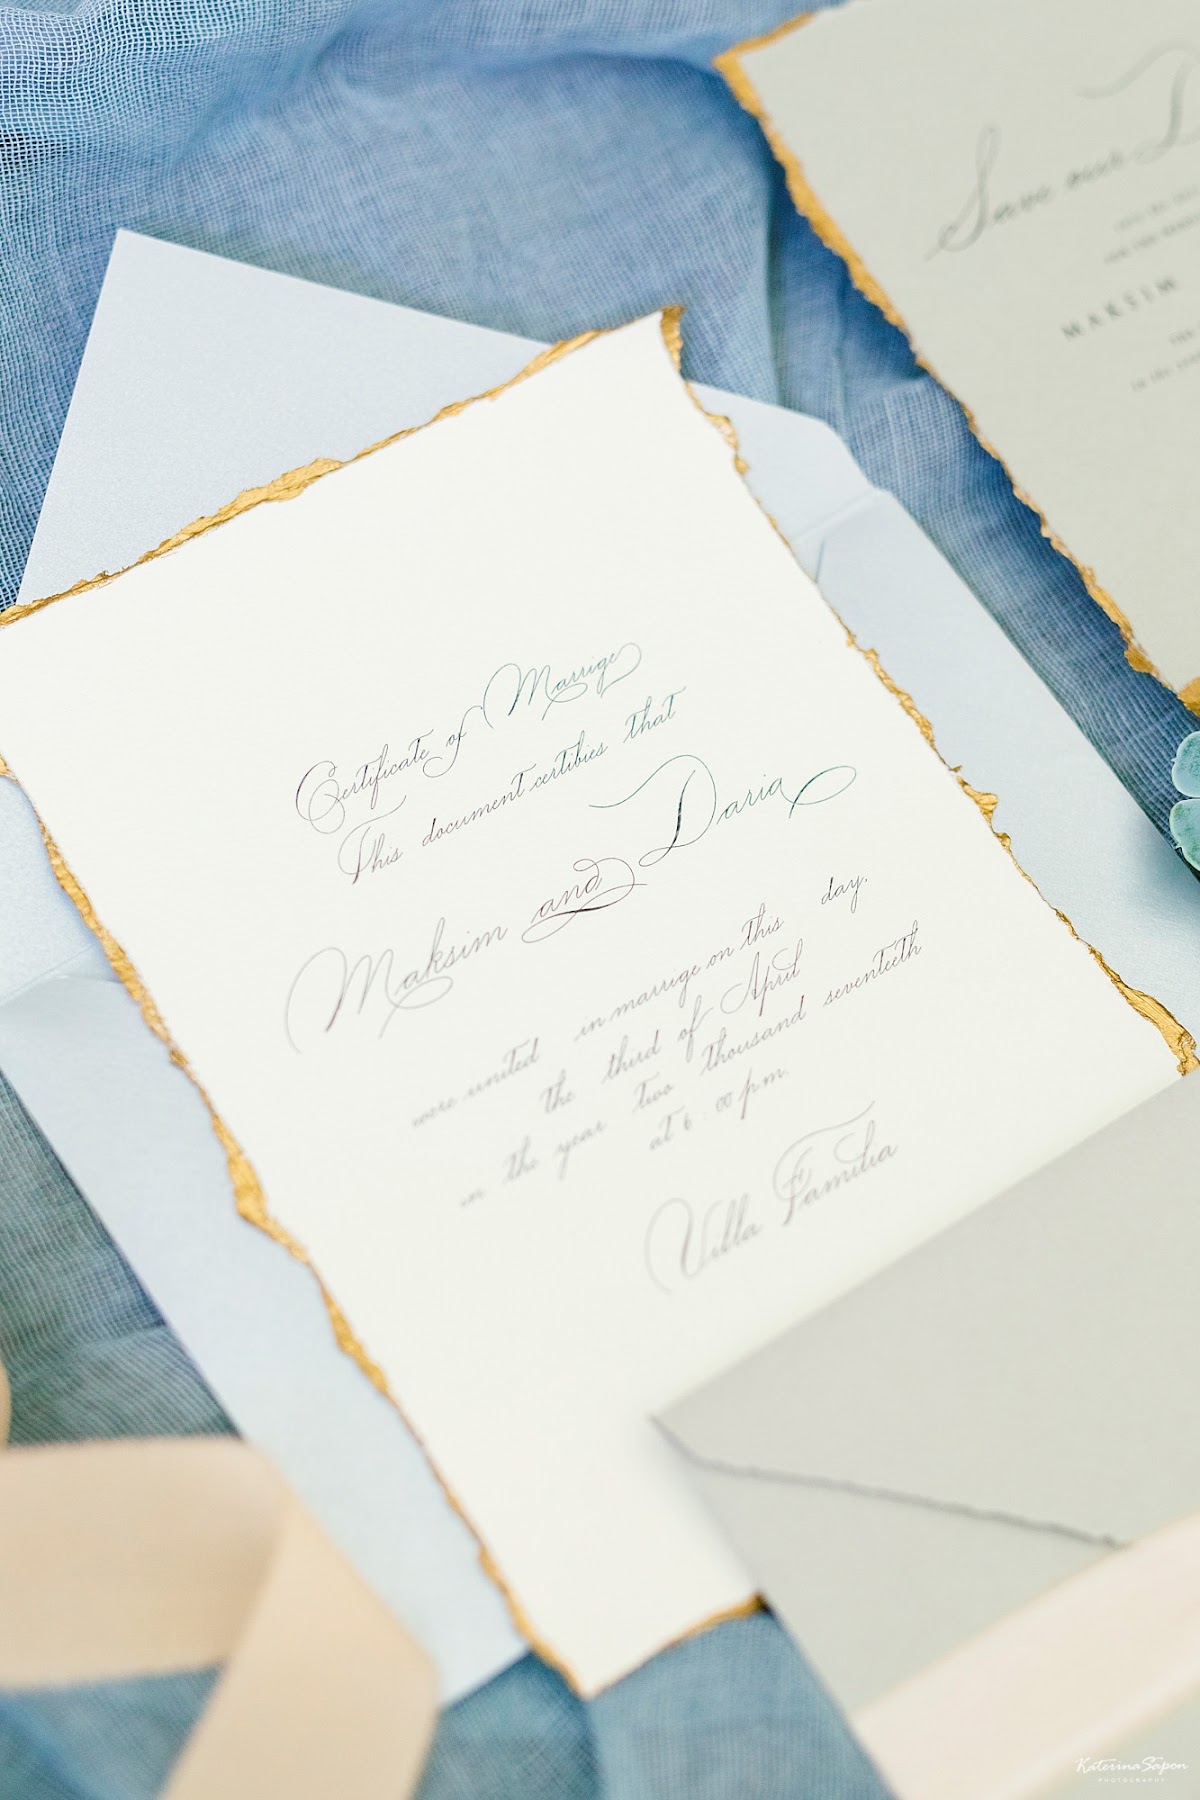 Certificate of Marrige
This document certibies that
Maksim and Daria
were united in marrige on this day.
the third of April
in the year two thousand seventeeth
at 6:00 p.m.
Villa Familia
Save our D
MAKSIM
KaterinaSapon
PHOTOGRAPHY